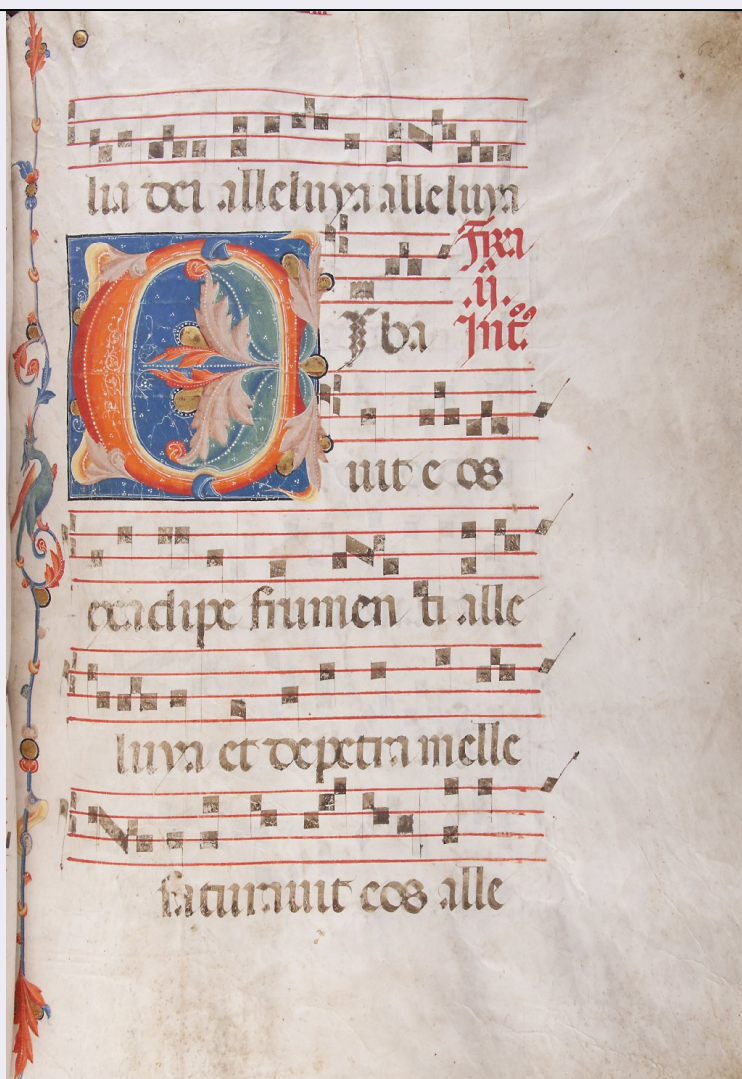 lia dei alleluya alleluya
Fra
.ij.
Cyba Int.
uit e os
exadipe frumen ti alle
luya et depetra melle
saturauit eos alle